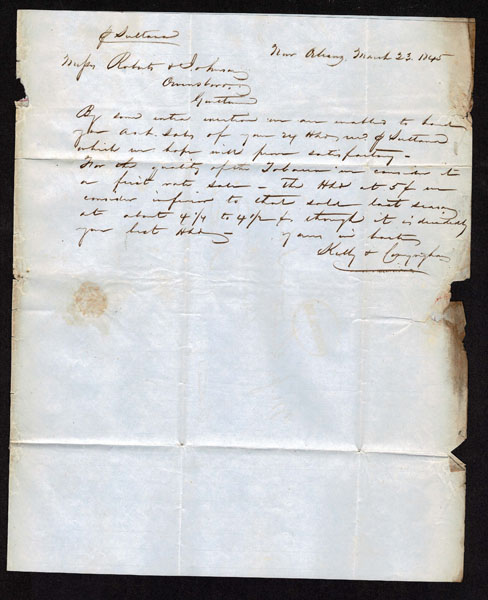 p Sultana
New Orleans, March 23. 1845
Messrs Roberts & Johnson
Owensboro
Gentlen
By some extra exertion we are enabled to hand
you Act. Sales of your 24 Hhds recd p Sultana
which we hope will prove satisfactory –
For the quality of the Tobacco we consider it
a first rate sale – the Hhd at 5¢ we
consider inferior to that sold last season
at about 4¼ to 4½ ¢ though it is decidedly
your best Hhd – yours in haste
Kelly &